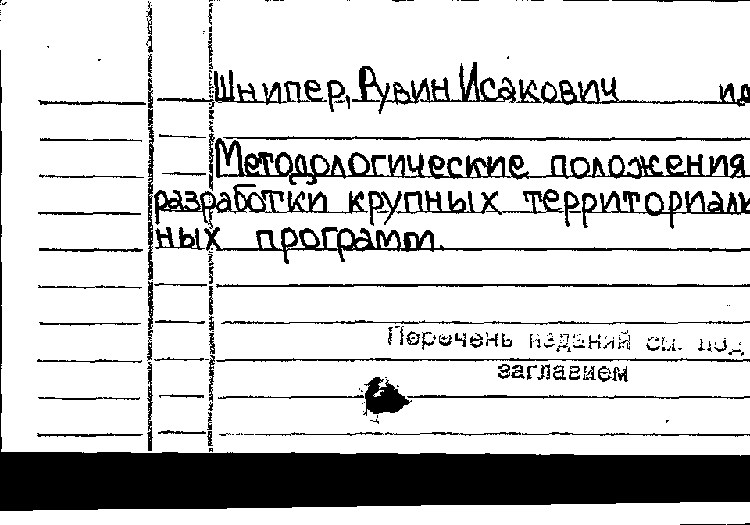 Шнипер, Рувин Исакович ид
Методологические положения
разработки крупных территориаль
ных программ.
Перечень изданий см. под
заглавием